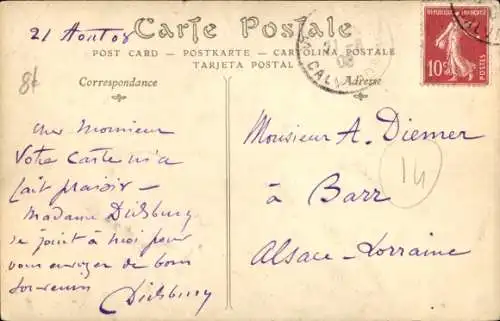 21 Aout 08
Carte Postale
POST CARD — POSTKARTE — CARTOLINA POSTALE
TARJETA POSTAL
Correspondance
Adresse
REPUBLIQUE FRANÇAISE
10c
POSTES
21
08
CALV
Cher Monsieur
Votre carte m'a
fait plaisir —
Madame Dietsburg
se joint à moi pour
vous envoyer de bons
souvenirs
Dietsburg
Monsieur A. Diemer
à Barr
Alsace-Lorraine
14